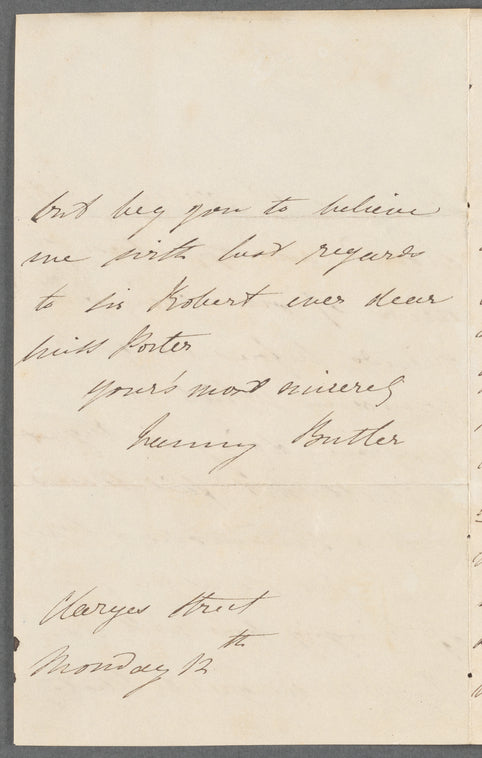 but beg you to believe
me with best regards
to Sir Robert ever dear
Miss Porter
your's most sincerely
Fanny Butler
Clarges Street
Monday 12th